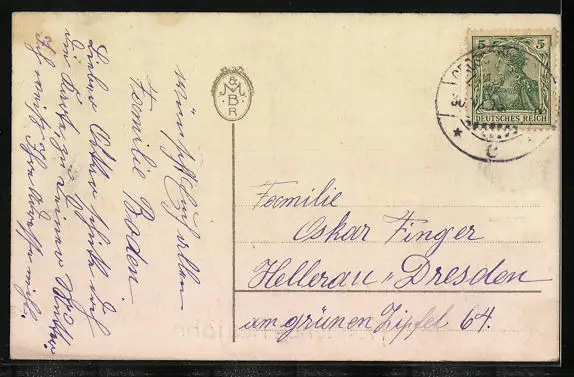 wünscht Euch allen
Familie Boden
Lieber Vetter schicke doch
die Karte zu Deiner
Ich weiß ihre Adresse nicht.
M & B R
5 5
DEUTSCHES REICH
Familie
Oskar Finger
Hellerau " Dresden
am grünen Zipfel 64.